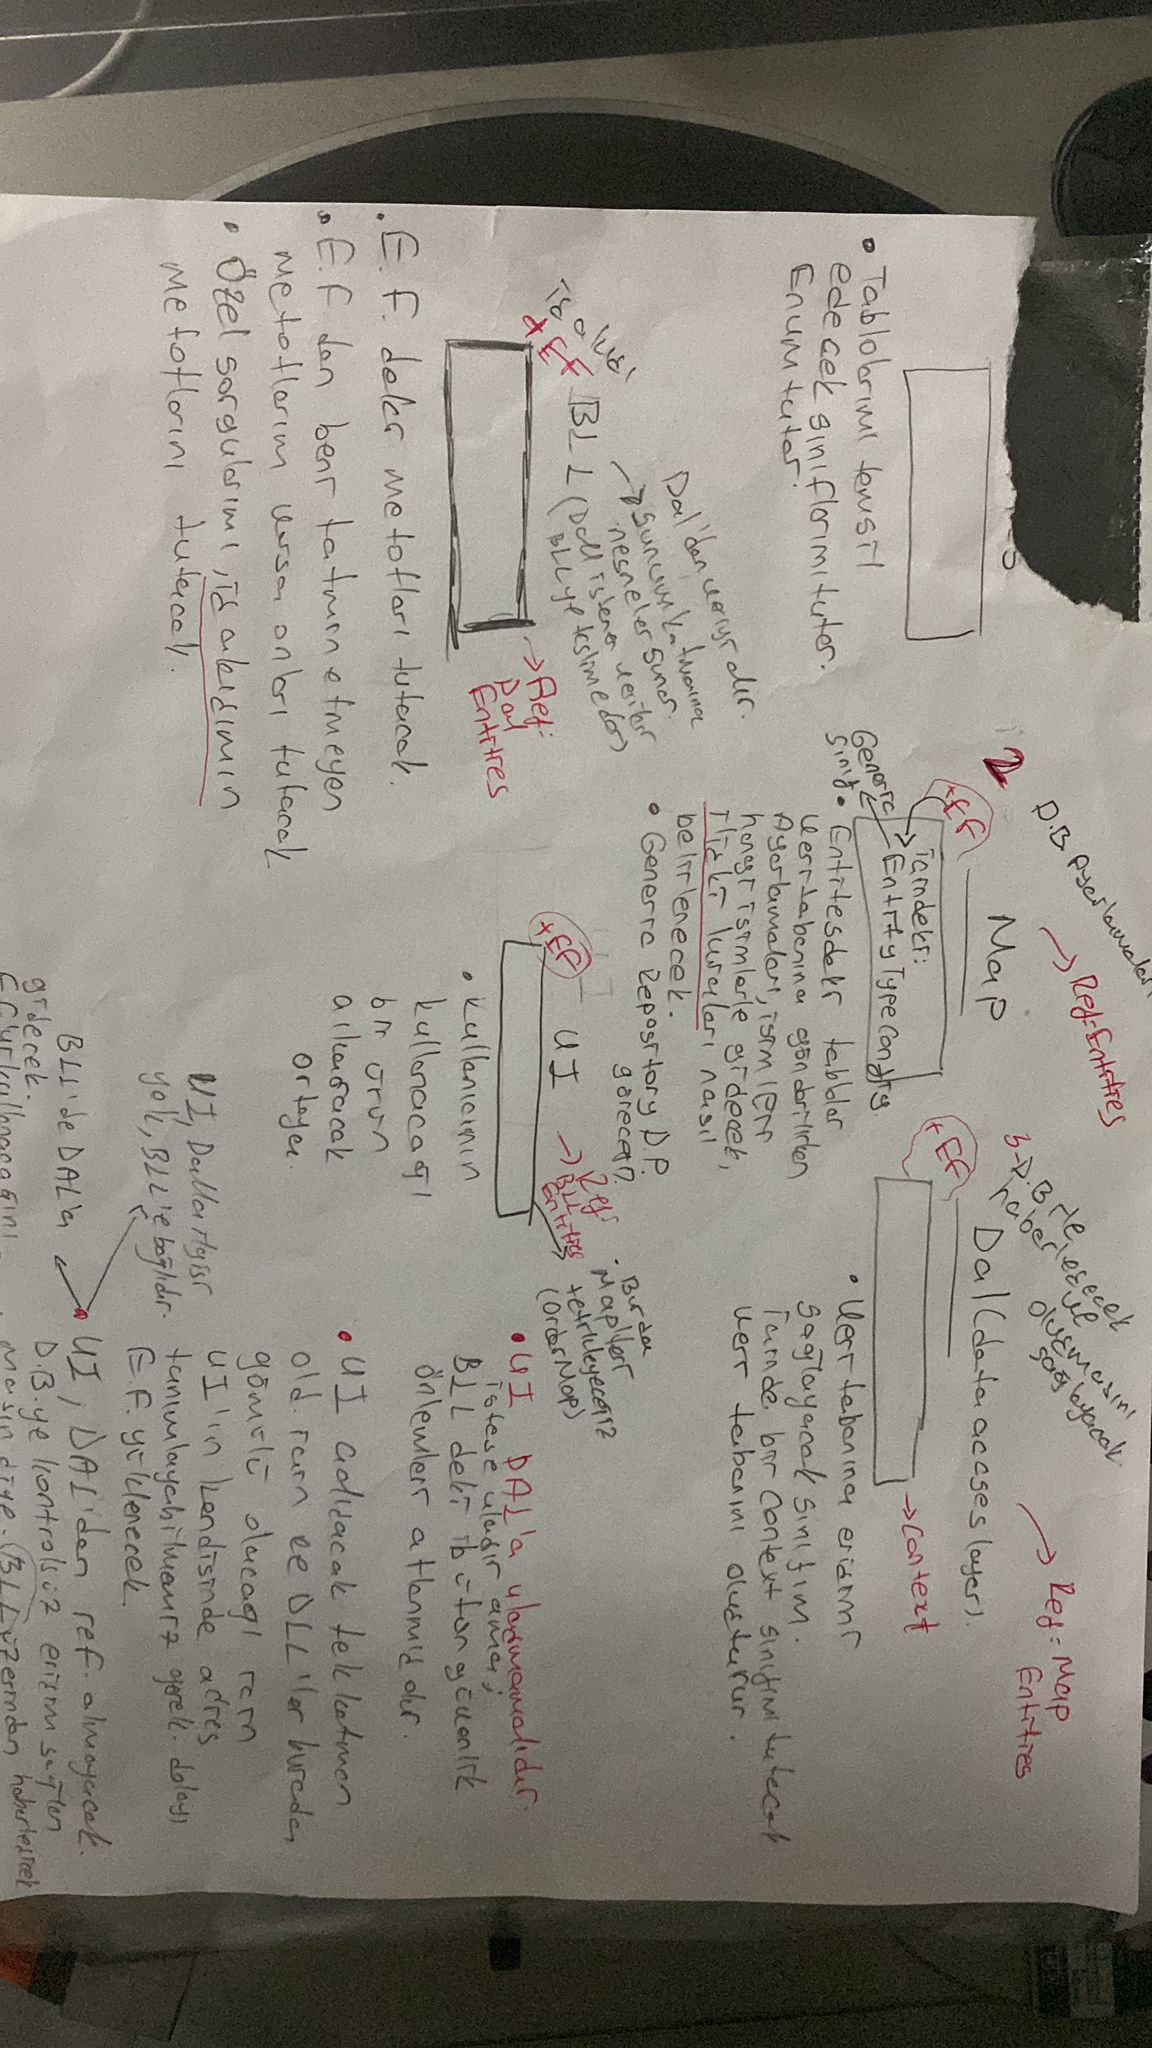 D.B. Ayarlamaları
2
→ Ref: Entities
Map
+EF
İçindeki:
EntityTypeConfig.
Generic
Sınıf
• Entitesdeki tablolar
veri tabanına gönderilirken
Ayarlamaları, isimleri
hangi isimlerle gidecek,
ilişki kuralları nasıl
belirlenecek.
• Generic Repository D.P.
göreceğiz
• Tablolarımı temsil
edecek sınıflarımı tutar.
Enum tutar.
3- D.B. ile
haberleşecek
ve
oluşmasını
sağlayacak
→ Ref: Map
Entities
Dal (data accses layer).
+EF
→ Context
• Veri tabanına erişimi
sağlayacak sınıfım.
İçinde bir Context sınıfımı tutacak
veri tabanını oluşturur.
İş akışı
+EF
BLL
Dal'dan veriyi alır.
→ Sunum katmanına
nesneler sunar.
(Dall istenen verileri
BLL ye teslim eder)
→ Ref:
Dal
Entities
• E.F. deki metotları tutacak.
• E.F. den beni tatmin etmeyen
metotlarım varsa onları tutacak
• Özel sorgularımı, iş akışımın
metotlarını tutacak.
+EF
UI
→ Ref:
BLL
Entities
• Burda
Map'leri
tetikleyeceğiz
(OrderMap)
• Kullanıcının
kullanacağı
bir ürün
çıkaracak
ortaya.
• UI DAL'a ulaşmamalıdır.
istese ulaşır ama;
BLL deki bütün güvenlik
önlemleri atlanmıştır.
• UI çalışacak tek katman
old. için ve DLL'ler burada
gömülü olacağı için
UI'ın kendisinde adres
tanımlayabilmemiz gerek. dolayı
E.F. yüklenecek.
UI, Dalla ilgisi
yok, BLL'e bağlıdır.
• UI, DAL'dan ref. almayacak.
D.B.ye kontrolsüz erişim sağlan
masın diye. BLL üzerinden haberleşicek
BLL'de DAL'a
gidecek.